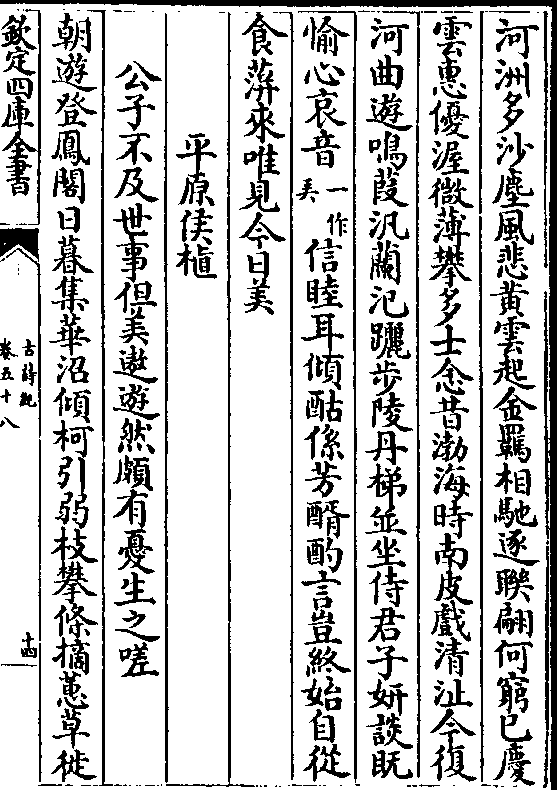 河洲多沙塵風悲黃雲起金羈相馳逐聯翩何窮已慶
雲惠優渥微薄攀多士念昔渤海時南皮戲清沚今復
河曲遊鳴葭汎蘭汜躧步陵丹梯並坐侍君子妍談既
愉心哀音一作美信睦耳傾酤係芳醑酌言豈終始自從
食蓱來唯見今日美
平原侯植
公子不及世事但美遨遊然頗有憂生之嗟
朝遊登鳳閣日暮集華沼傾柯引弱枝攀條摘蕙草徙
欽定四庫全書
古詩紀
卷五十八
十四